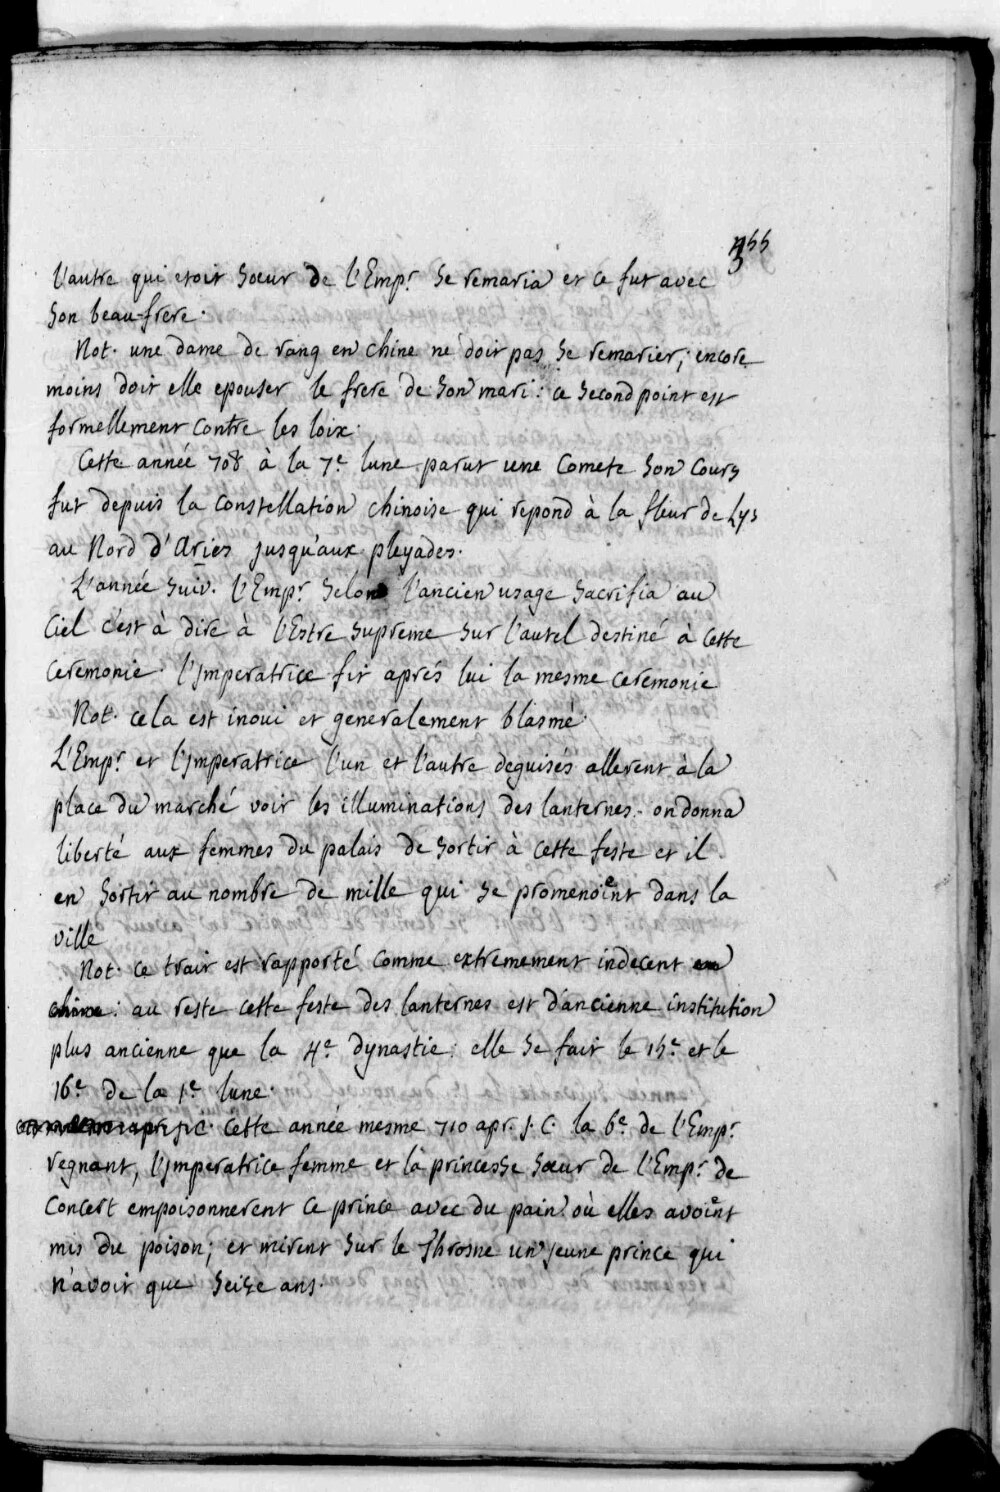 355
l'autre qui etoit sœur de l'Emp.r se remaria et ce fut avec
son beau-frere.
Not. une dame de rang en chine ne doit pas se remarier; encore
moins doit elle epouser le frere de son mari: ce second point est
formellement contre les loix.
Cette année 708 à la 7.e lune parut une Comete son cours
fut depuis la constellation chinoise qui repond à la fleur de Lys
au Nord d'Aries jusqu'aux pleyades.
L'année suiv. l'Emp.r selon l'ancien usage sacrifia au
Ciel c'est à dire à l'Estre supreme sur l'autel destiné à cette
ceremonie. l'Imperatrice fit aprés lui la mesme ceremonie
Not. cela est inoui et generalement blasmé.
L'Emp.r et l'Imperatrice l'un et l'autre deguisés allerent à la
place du marché voir les illuminations des lanternes. on donna
liberté aux femmes du palais de sortir à cette feste et il
en sortit au nombre de mille qui se promenoient dans la
ville
Not. ce trait est rapporté comme extremement indecent en
chine: au reste cette feste des lanternes est d'ancienne institution
plus ancienne que la 4.e dynastie: elle se fait le 15.e et le
16.e de la 1.e lune.
Cette année mesme 710 apr. J. C. la 6.e de l'Emp.r
regnant, l'Imperatrice femme et la princesse sœur de l'Emp.r de
concert empoisonnerent ce prince avec du pain où elles avoient
mis du poison; et mirent sur le Throsne un jeune prince qui
n'avoit que seize ans.